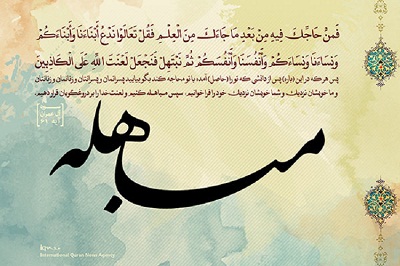 فَمَنْ حَاجَّكَ فِيهِ مِنْ بَعْدِ مَا جَاءَكَ مِنَ الْعِلْمِ فَقُلْ تَعَالَوْا نَدْعُ أَبْنَاءَنَا وَأَبْنَاءَكُمْ
وَنِسَاءَنَا وَنِسَاءَكُمْ وَأَنْفُسَنَا وَأَنْفُسَكُمْ ثُمَّ نَبْتَهِلْ فَنَجْعَلْ لَعْنَتَ اللَّهِ عَلَى الْكَاذِبِينَ
پس هر که در این (باره) پس از دانشی که تو را (حاصل) آمده، با تو محاجه کند بگو بیایید پسرانمان و پسرانتان و زنانمان و زنانتان
و ما خویشان نزدیک و شما خویشان نزدیک خود را فرا خوانیم، سپس مباهله کنیم و لعنت خدا را بر دروغگویان قرار دهیم.
مباهله
International Quran News Agency